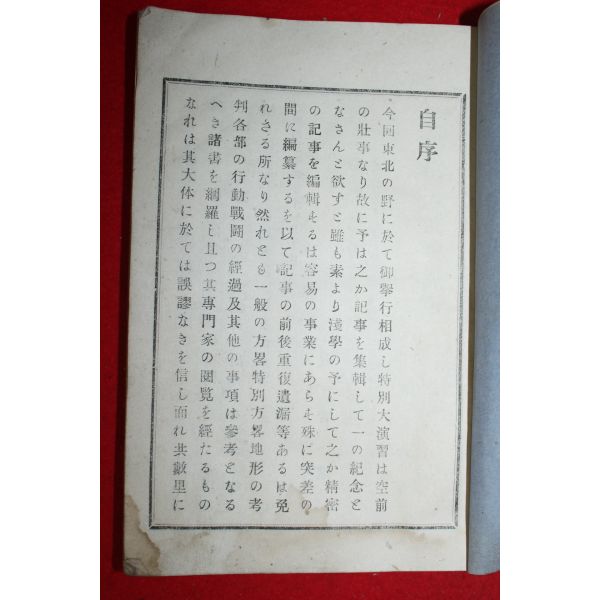 自序
今回東北の野に於て御擧行相成し特別大演習は空前
の壯事なり故に予は之か記事を集輯して一の紀念と
なさんと欲すと雖も素より淺學の予にして之か精密
の記事を編輯するは容易の事業にあらす殊に突差の
間に編纂するを以て記事の前後重復遺漏等あるは免
れさる所なり然れとも一般の方畧特別方畧地形の考
判各部の行動戰鬪の經過及其他の事項は參考となる
へき諸書を網羅し且つ其專門家の閲覽を經たるもの
なれは其大体に於ては誤謬なきを信し而れ共敝里に